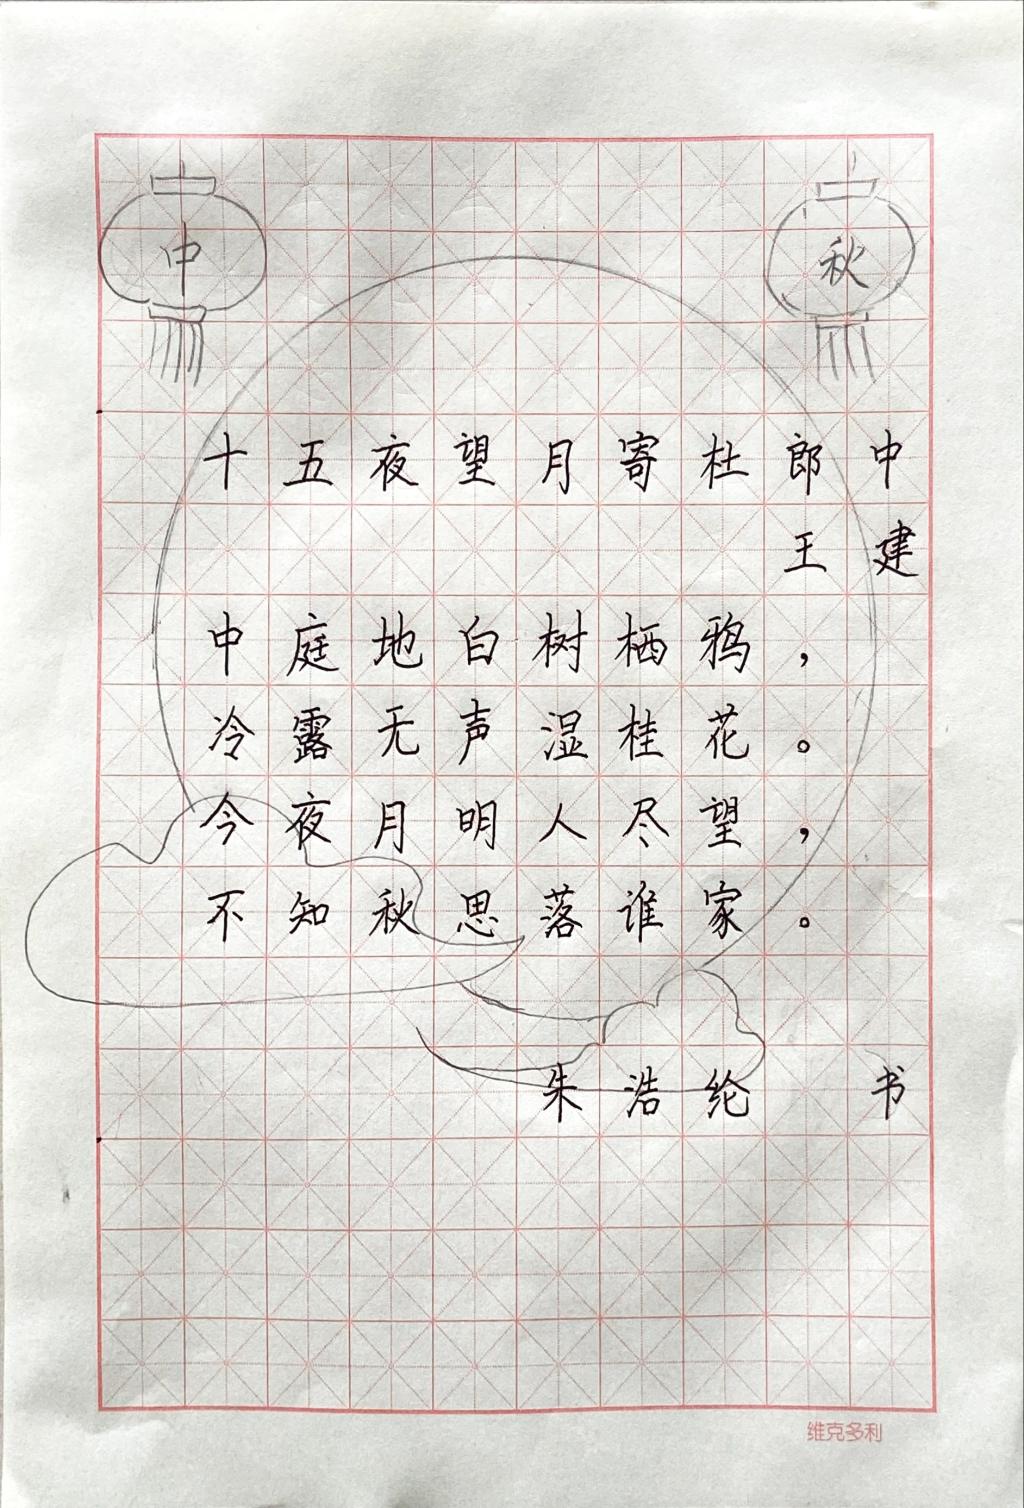 中 秋
十五夜望月寄杜郎中
王建
中庭地白树栖鸦，
冷露无声湿桂花。
今夜月明人尽望，
不知秋思落谁家。
朱浩纶 书
维克多利